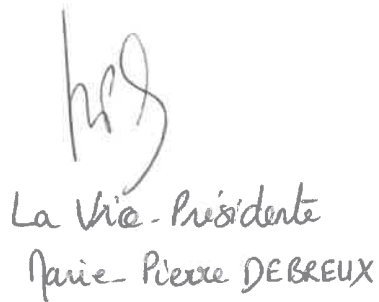 La Vice-Présidente
Marie-Pierre DEBREUX